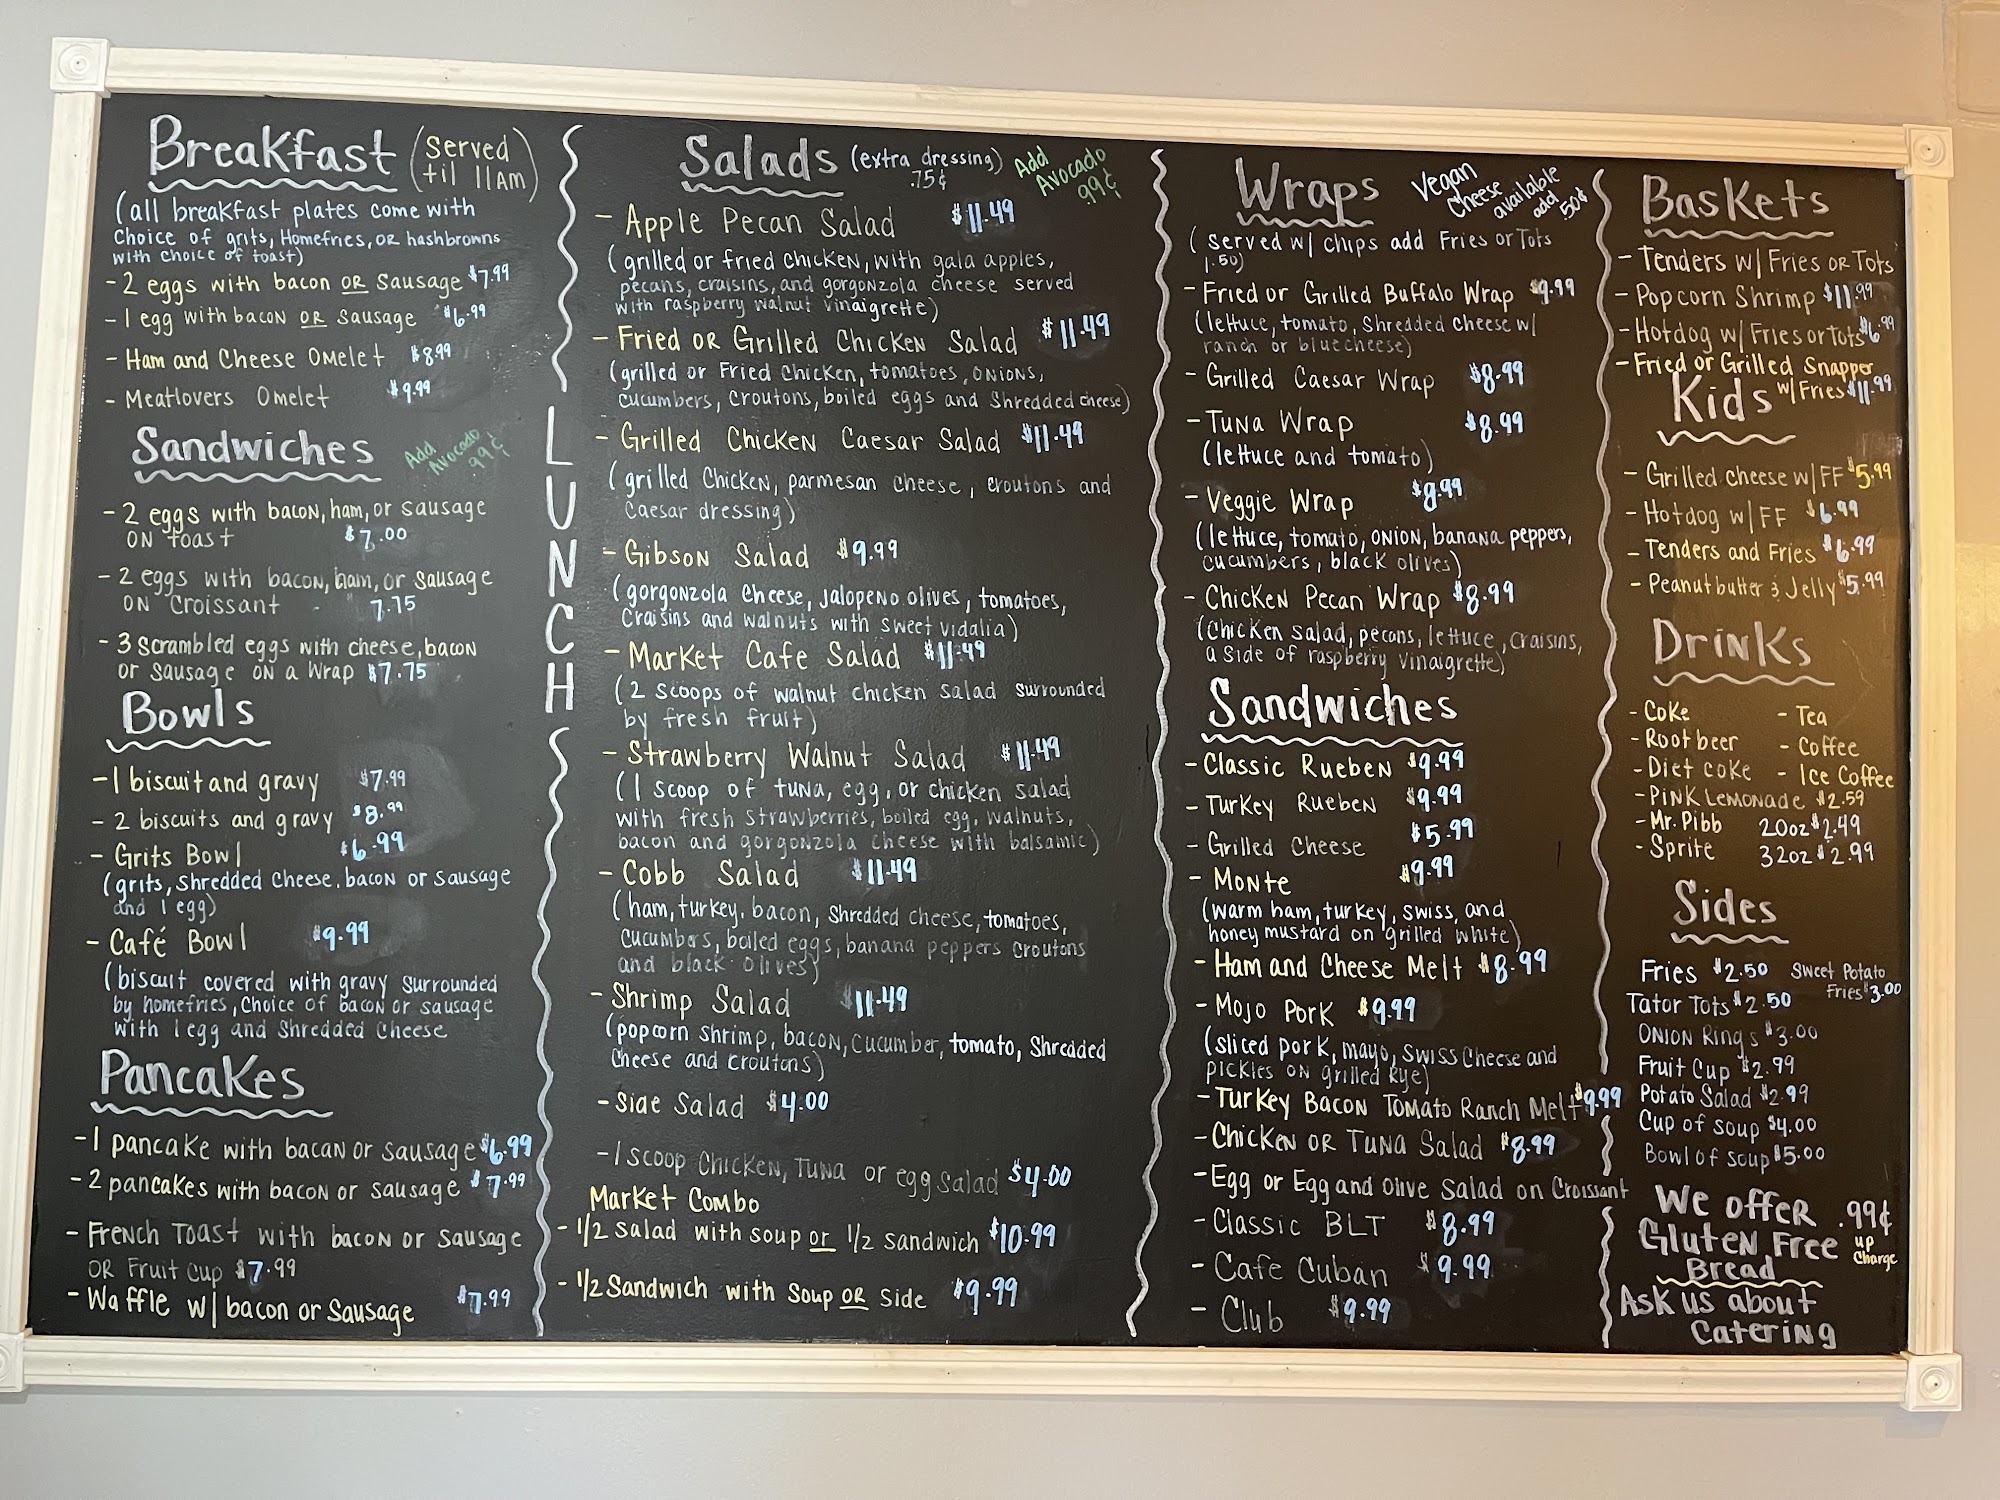 Breakfast (Served
til 11AM)
(all breakfast plates come with
choice of grits, Homefries, OR hashbrowns
with choice of toast)
- 2 eggs with bacon OR Sausage $7.99
- 1 egg with bacon OR Sausage $6.99
- Ham and Cheese Omelet $8.99
- Meatlovers Omelet $9.99
Sandwiches Add
Avocado
99¢
- 2 eggs with bacon, ham, or sausage
ON toast $7.00
- 2 eggs with bacon, ham, or Sausage
ON Croissant 7.75
- 3 Scrambled eggs with cheese, bacon
or Sausage ON a Wrap $7.75
Bowls
- 1 biscuit and gravy $7.99
- 2 biscuits and gravy $8.99
- Grits Bowl $6.99
(grits, Shredded Cheese, bacon or Sausage
and 1 egg)
- Café Bowl $9.99
(biscuit covered with gravy Surrounded
by homefries, Choice of bacon or sausage
with 1 egg and Shredded Cheese
Pancakes
- 1 pancake with bacan or sausage $6.99
- 2 pancakes with bacon or sausage $7.99
- French Toast with bacon or Sausage
OR Fruit Cup $7.99
- Waffle w/ bacon or Sausage $7.99
LUNCH
Salads (extra dressing)
.75¢
Add
Avocado
99¢
- Apple Pecan Salad $11.49
(grilled or fried chicken, with gala apples,
pecans, craisins, and gorgonzola cheese served
with raspberry walnut vinaigrette)
- Fried OR Grilled Chicken Salad $11.49
(grilled or Fried Chicken, tomatoes, onions,
cucumbers, croutons, boiled eggs and Shredded cheese)
- Grilled Chicken Caesar Salad $11.49
(grilled Chicken, parmesan cheese, croutons and
Caesar dressing)
- Gibson Salad $9.99
(gorgonzola cheese, jalopeno olives, tomatoes,
Craisins and walnuts with sweet vidalia)
- Market Cafe Salad $11.49
(2 scoops of walnut chicken salad surrounded
by fresh fruit)
- Strawberry Walnut Salad $11.49
(1 scoop of tuna, egg, or chicken salad
with fresh strawberries, boiled egg, walnuts,
bacon and gorgonzola cheese with balsamic)
- Cobb Salad $11.49
(ham, turkey, bacon, Shredded cheese, tomatoes,
cucumbers, boiled eggs, banana peppers croutons
and black olives)
- Shrimp Salad $11.49
(popcorn shrimp, bacon, cucumber, tomato, Shredded
Cheese and croutons)
- Side Salad $4.00
- 1 scoop Chicken, Tuna or egg salad $4.00
Market Combo
- 1/2 salad with soup or 1/2 sandwich $10.99
- 1/2 Sandwich with Soup OR side $9.99
Wraps Vegan
Cheese
available
add 50¢
(served w/ chips add Fries or Tots
1.50)
- Fried or Grilled Buffalo Wrap $9.99
(lettuce, tomato, Shredded cheese w/
ranch or bluecheese)
- Grilled Caesar Wrap $8.99
- Tuna Wrap $8.99
(lettuce and tomato)
- Veggie Wrap $8.99
(lettuce, tomato, onion, banana peppers,
cucumbers, black olives)
- Chicken Pecan Wrap $8.99
(chicken salad, pecans, lettuce, craisins,
a side of raspberry vinaigrette)
Sandwiches
- Classic Rueben $9.99
- Turkey Rueben $9.99
- Grilled Cheese $5.99
- Monte $9.99
(warm ham, turkey, swiss, and
honey mustard on grilled white)
- Ham and Cheese Melt $8.99
- Mojo Pork $9.99
(sliced pork, mayo, swiss cheese and
pickles on grilled Rye)
- Turkey Bacon Tomato Ranch Melt $9.99
- Chicken OR Tuna Salad $8.99
- Egg or Egg and olive salad on Croissant
- Classic BLT $8.99
- Cafe Cuban $9.99
- Club $9.99
Baskets
- Tenders w/ Fries OR Tots
- Popcorn Shrimp $11.99
- Hotdog w/ Fries or Tots $6.99
- Fried or Grilled Snapper
w/ Fries $11.99
Kids
- Grilled cheese w/ FF $5.99
- Hotdog w/ FF $6.99
- Tenders and Fries $6.99
- Peanut butter & Jelly $5.99
Drinks
- Coke - Tea
- Rootbeer - Coffee
- Diet Coke - Ice Coffee
- Pink Lemonade $2.59
- Mr. Pibb 20oz $2.49
- Sprite 32oz $2.99
Sides
Fries $2.50 Sweet Potato
Fries $3.00
Tator Tots $2.50
Onion Rings $3.00
Fruit Cup $2.99
Potato Salad $2.99
Cup of soup $4.00
Bowl of soup $5.00
We offer .99¢
Gluten Free up
Bread Charge
Ask us about
Catering